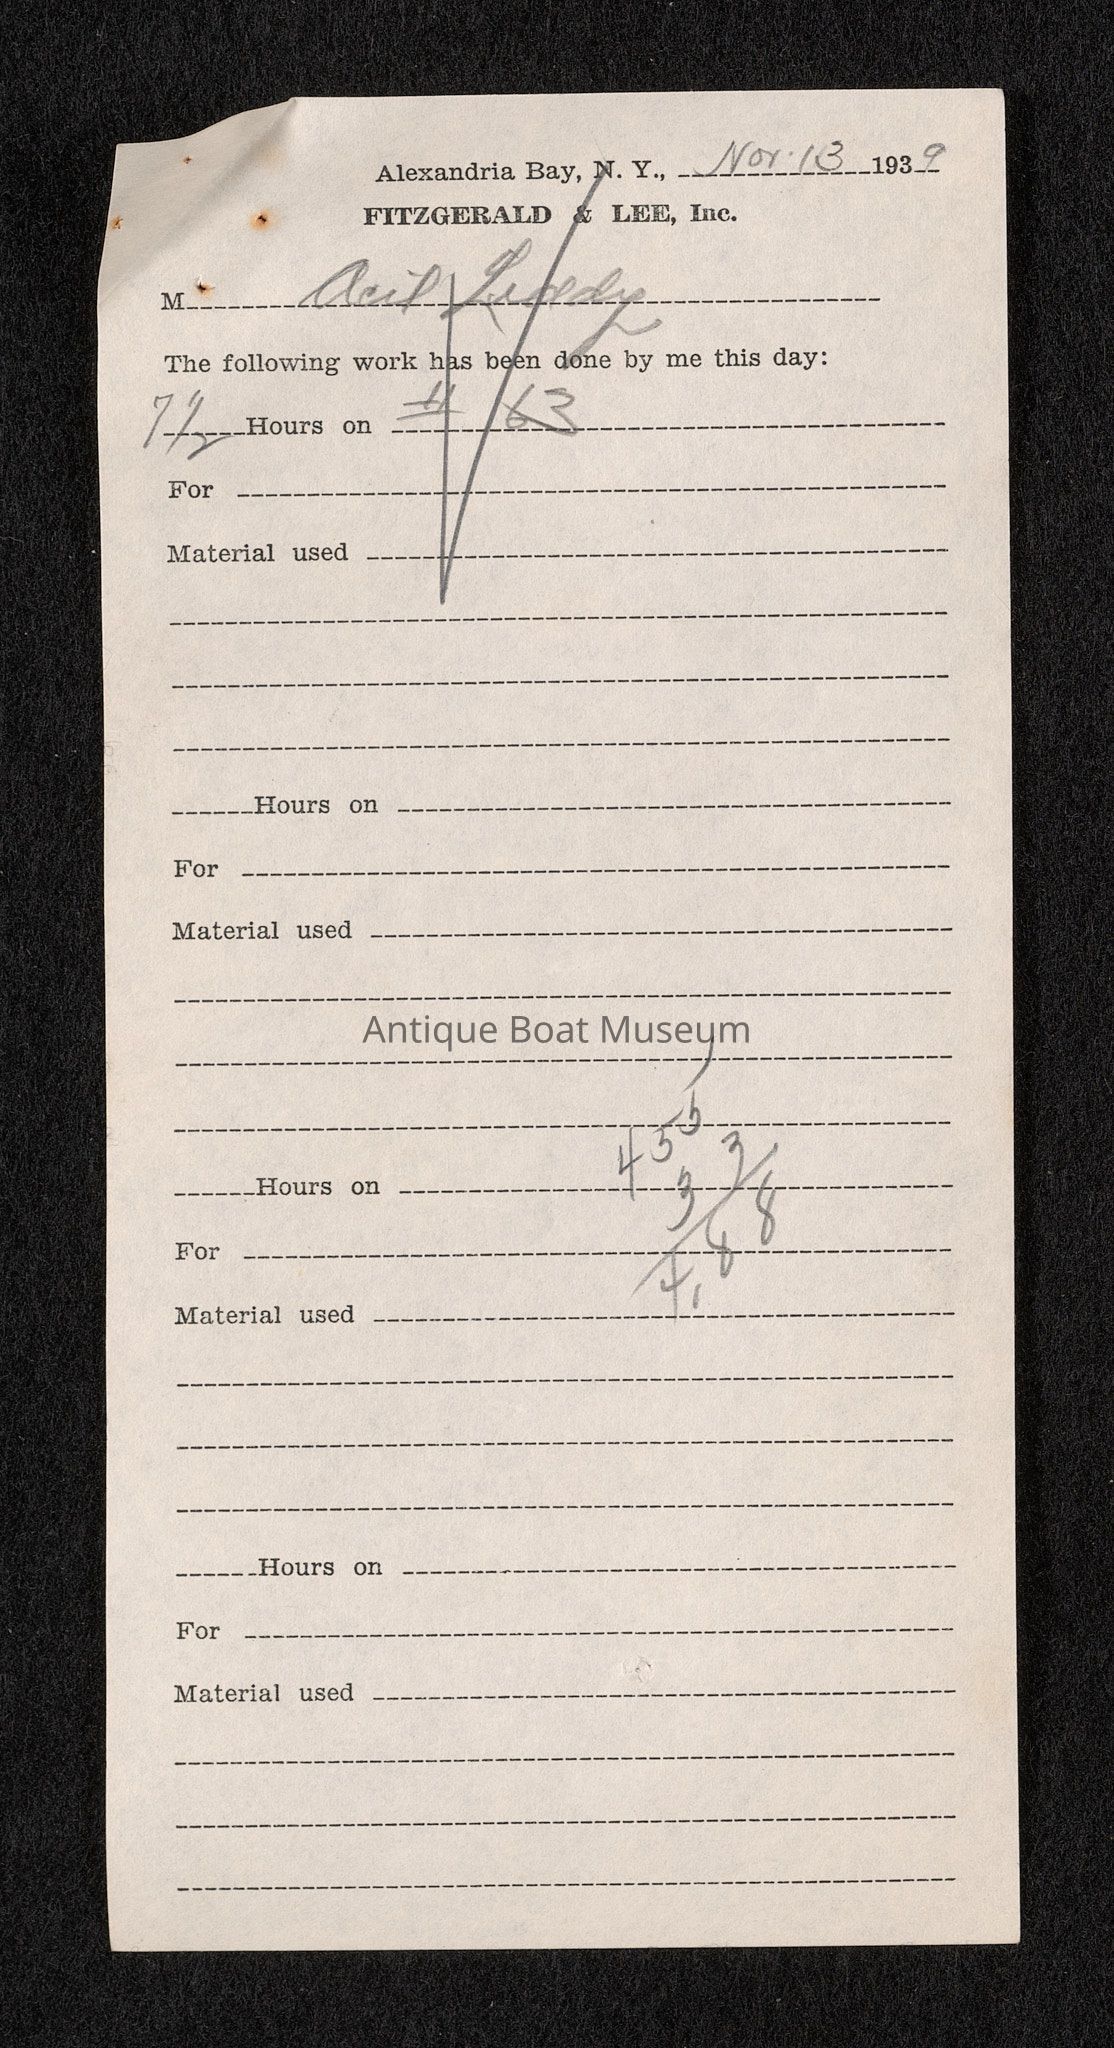 Alexandria Bay, N. Y., Nov. 13 1939
FITZGERALD & LEE, Inc.
M
The following work has been done by me this day:
7 1/2 Hours on # 63
For
Material used
Hours on
For
Material used
Antique Boat Museum
Hours on
For
Material used
Hours on
For
Material used